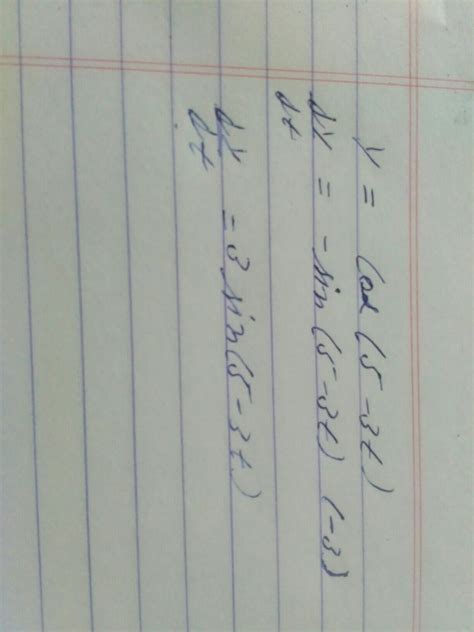 y = cos (5-3t)
dy/dt = -sin (5-3t) (-3)
dy/dt = 3 sin (5-3t)